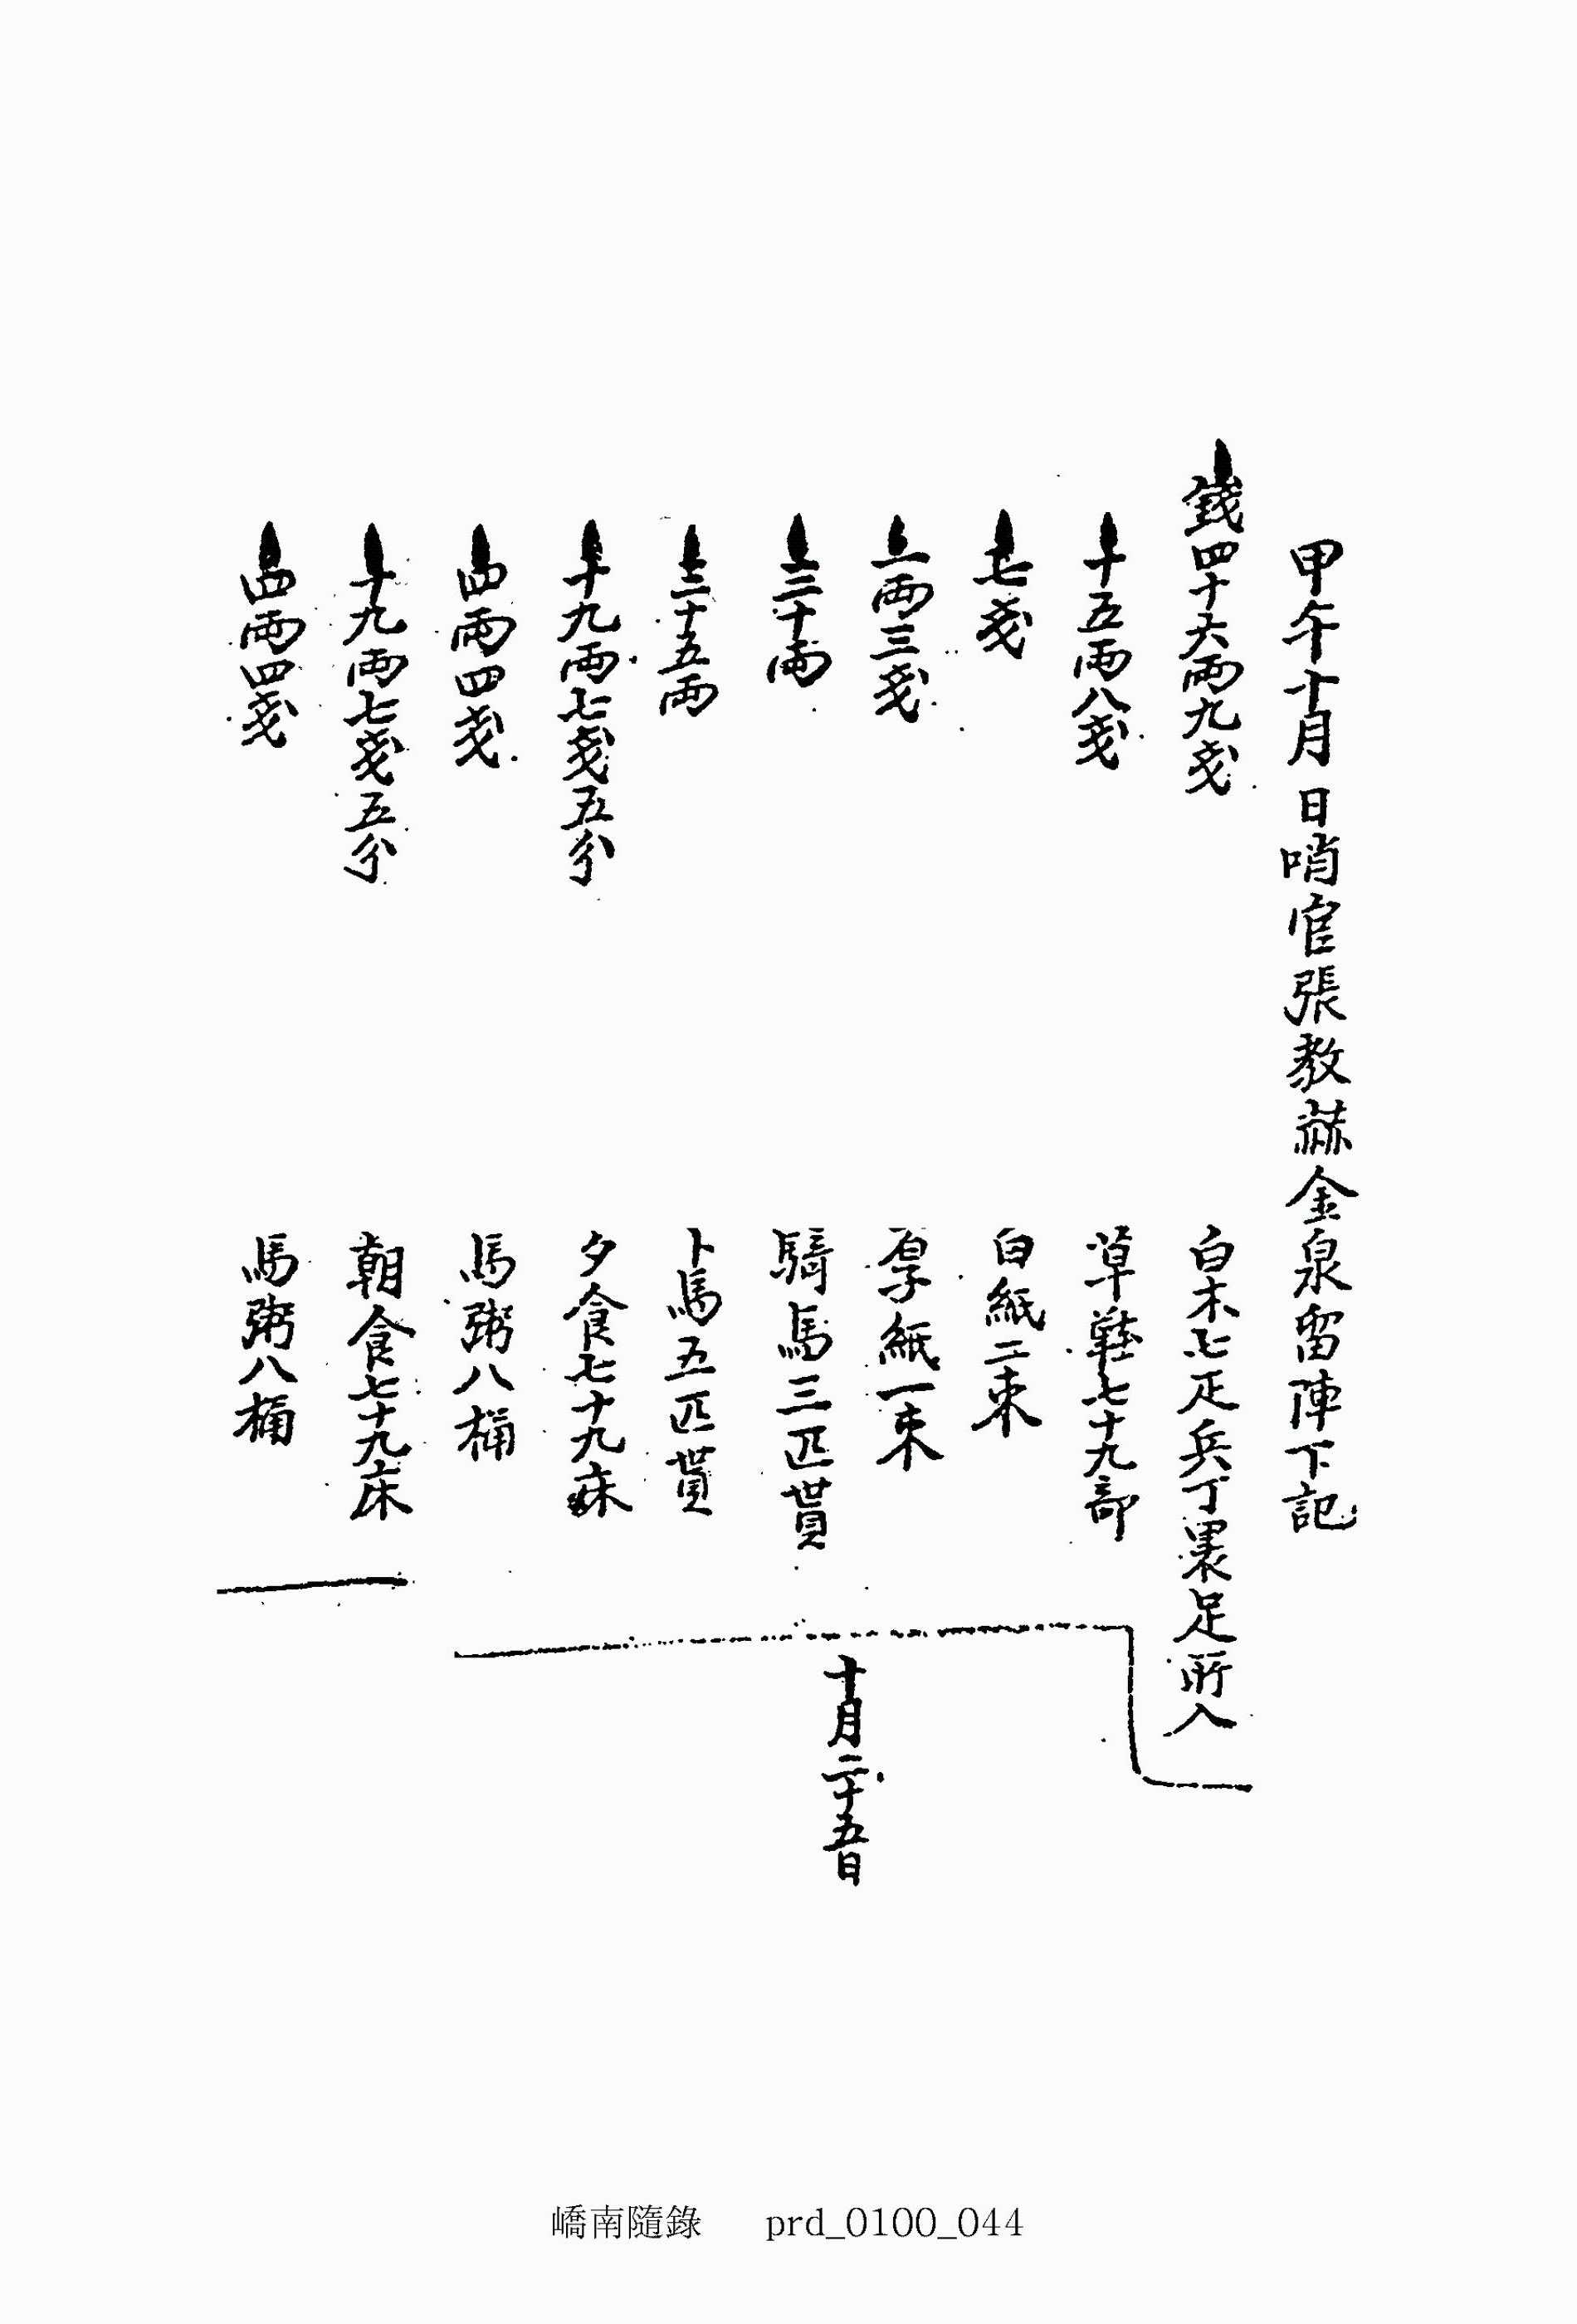 甲午十月 日哨官張教爀金泉留陣下記
錢四十六両九戔 白木七疋兵丁裹足所入
十五両八戔 草鞋七十九部
七戔 白紙二束
二両三戔 厚紙一束
三十両 騎馬三匹貰
三十五両 卜馬五匹貰
十九両七戔五分 夕食七十九床
四両四戔 馬粥八桶
十月二十五日
十九両七戔五分 朝食七十九床
四両四戔 馬粥八桶
嶠南隨錄 prd_0100_044